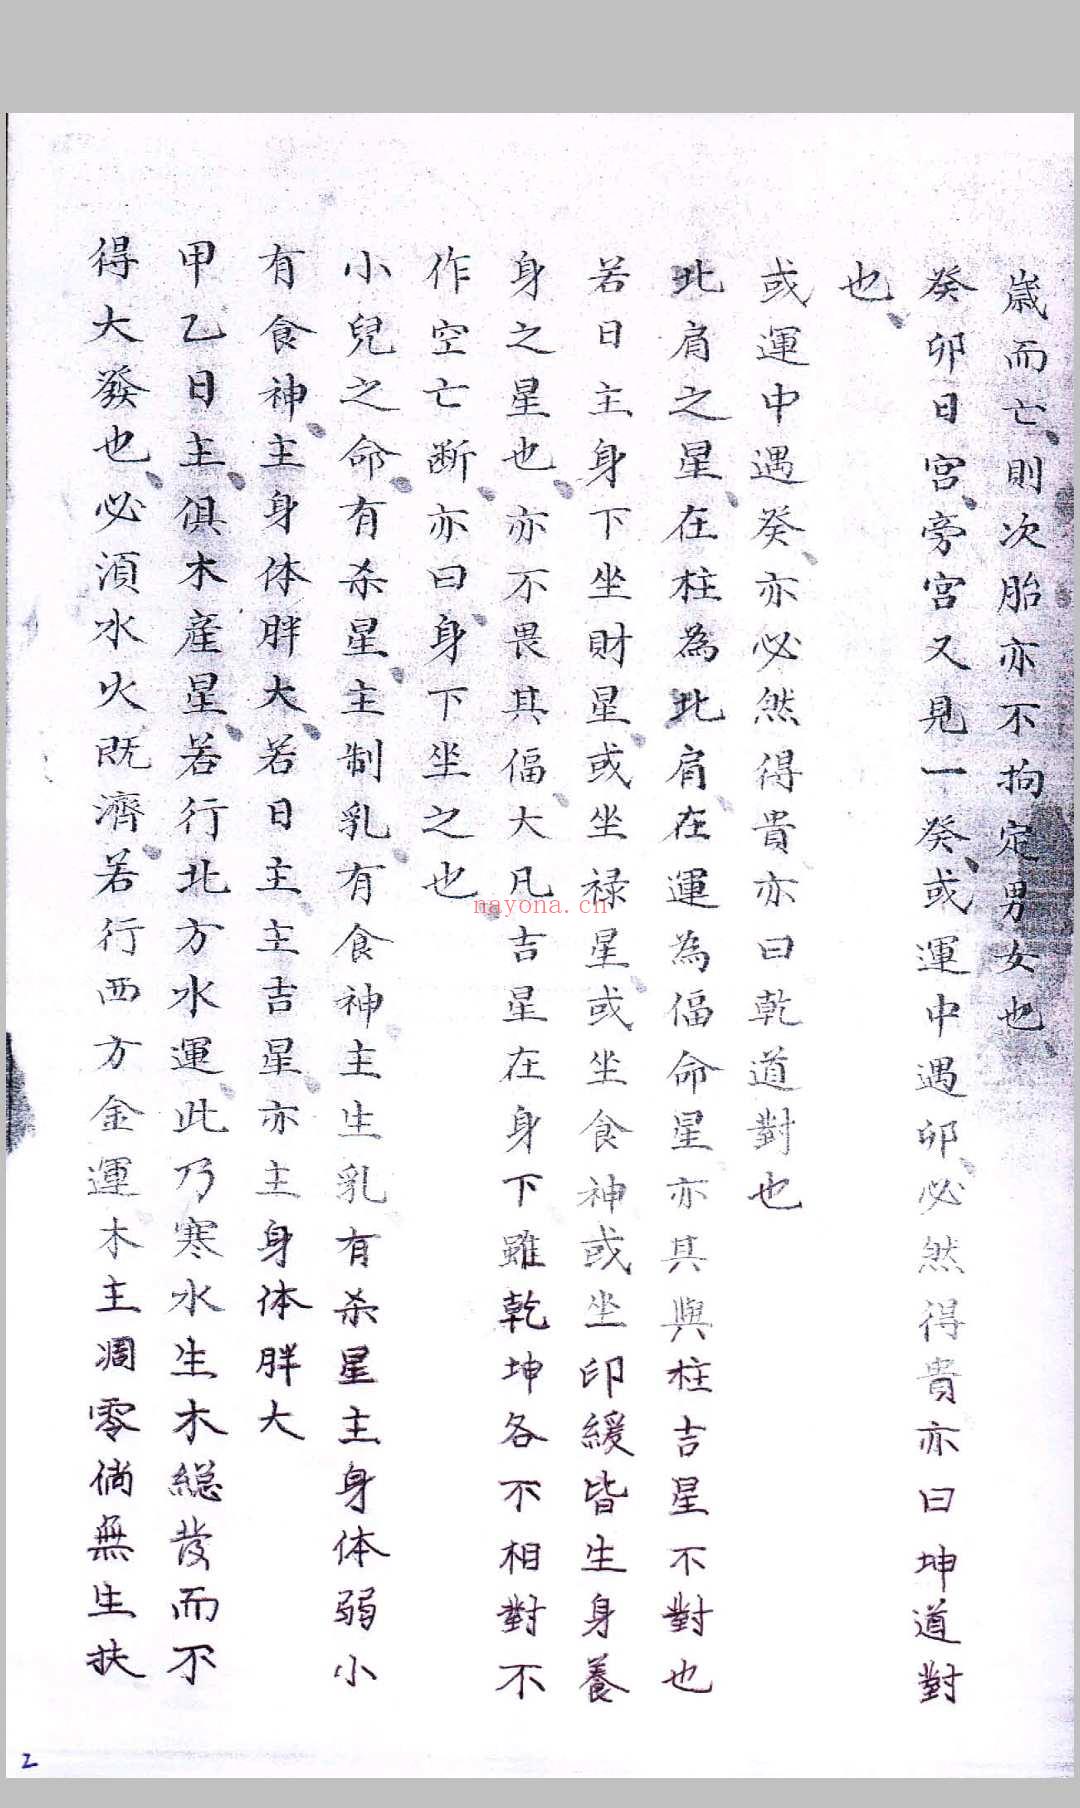 歲而亡、則次胎亦不拘定男女也、
癸卯日宮、旁宮又見一癸、或運中遇卯、必然得貴亦曰坤道對
也、
或運中遇癸、亦必然得貴亦曰乾道對也
比肩之星、在柱為比肩在運為偪命星亦其與柱吉星不對也
若日主身下坐財星、或坐祿星、或坐食神或坐印緩皆生身養
身之星也、亦不畏其偪大凡吉星在身下雖乾坤各不相對不
作空亡断、亦曰身、下坐之也、
小兒之命、有杀星、主制乳、有食神、主生乳有杀星主身体弱小
有食神、主身体胖大、若日主主吉星、亦主身体胖大
甲乙日主、俱木産星、若行北方水運、此乃寒水生木縂發而不
得大發也、必湏水火既濟、若行西方金運木主凋零倘無生扶
2
nayona.cn